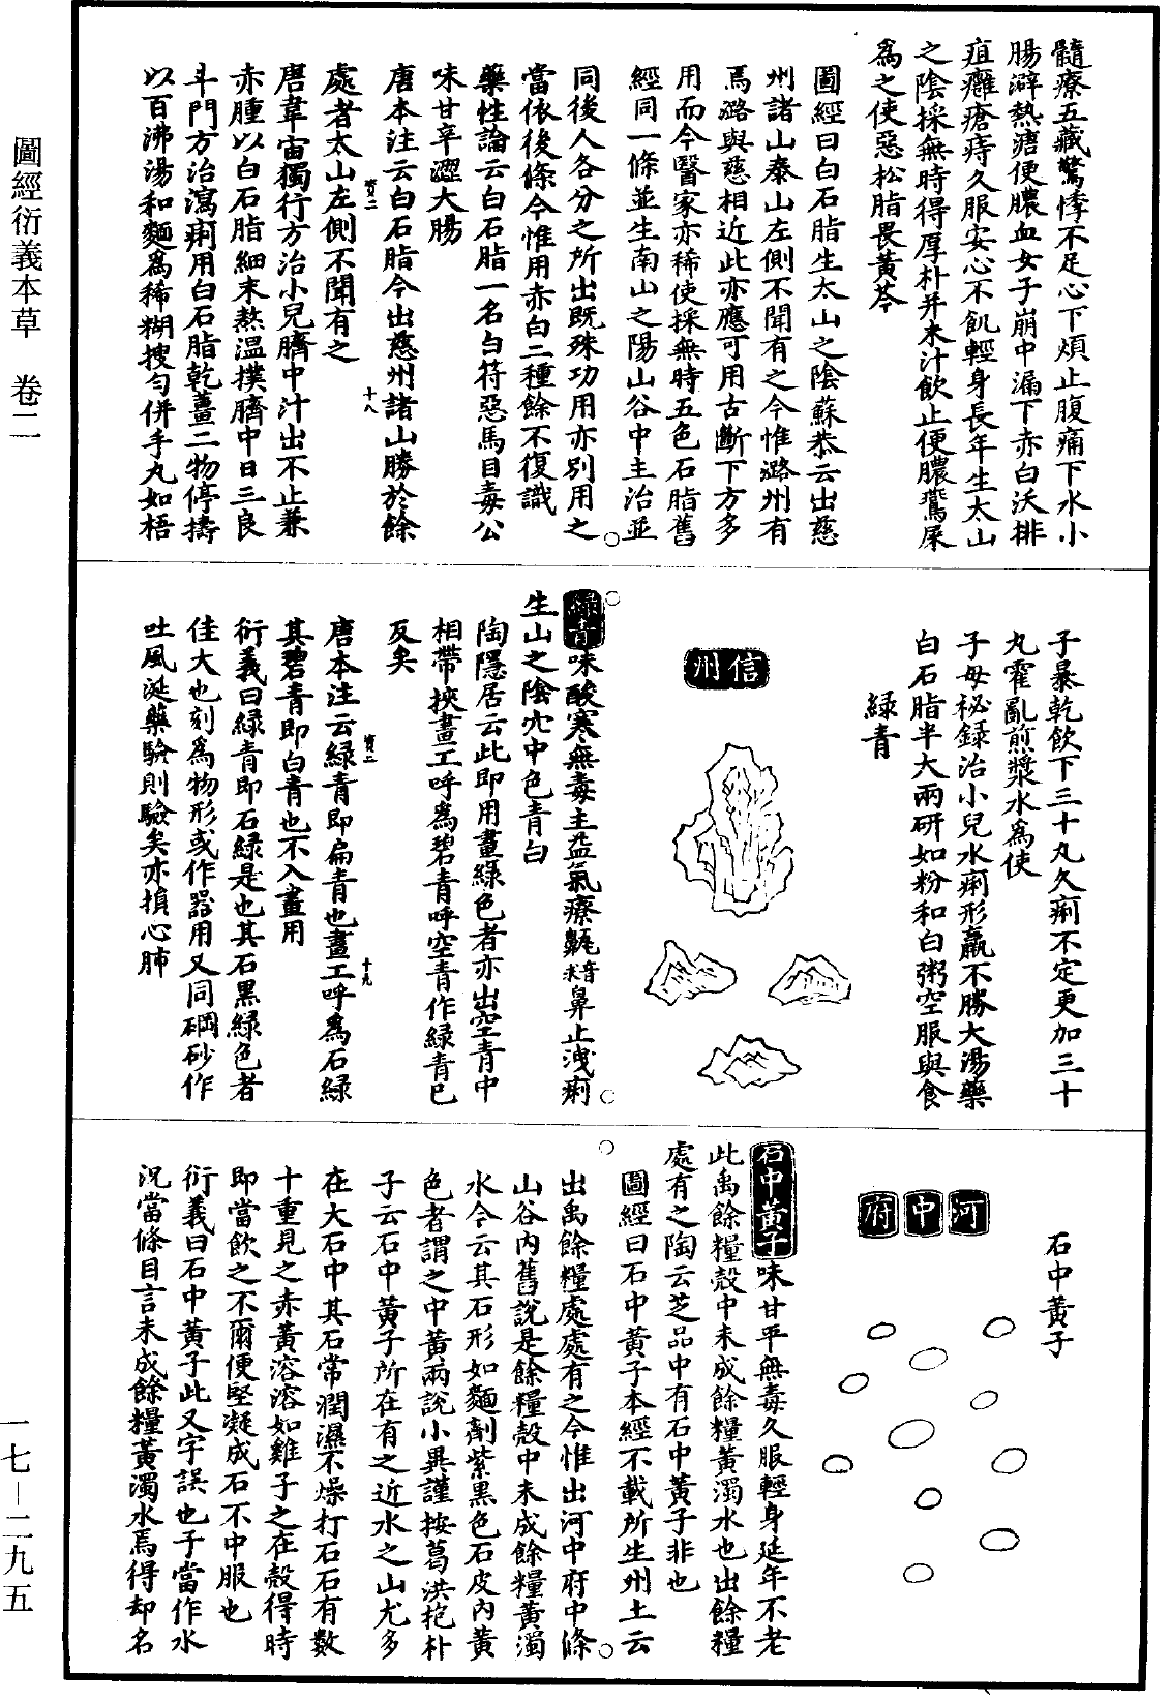 圖經衍義本草　卷二
一七－二九五
髓療五藏驚悸不足心下煩止腹痛下水小
腸澼熱溏便膿血女子崩中漏下赤白沃排
疽癰瘡痔久服安心不飢輕身長年生太山
之陰採無時得厚朴并米汁飲止便膿鷰屎
為之使惡松脂畏黃芩
圖經曰白石脂生太山之陰蘇恭云出慈
州諸山泰山左側不聞有之今惟潞州有
焉潞與慈相近此亦應可用古斷下方多
用而今醫家亦稀使採無時五色石脂舊
經同一條並生南山之陽山谷中主治並
同後人各分之所出既殊功用亦別用之
當依後條今惟用赤白二種餘不復識
藥性論云白石脂一名白符惡馬目毒公
味甘辛澀大腸
唐本注云白石脂今出慈州諸山勝於餘
處者太山左側不聞有之
寶二
十八
唐韋宙獨行方治小兒臍中汁出不止兼
赤腫以白石脂細末熬溫撲臍中日三良
斗門方治瀉痢用白石脂乾薑二物停擣
以百沸湯和麵為稀糊搜勻併手丸如梧
子暴乾飲下三十丸久痢不定更加三十
丸霍亂煎漿水為使
子母秘錄治小兒水痢形羸不勝大湯藥
白石脂半大兩研如粉和白粥空服與食
綠青
信州
綠青味酸寒無毒主益氣療鼽音求鼻止洩痢
生山之陰穴中色青白
陶隱居云此即用畫綠色者亦出空青中
相帶挾畫工呼為碧青呼空青作綠青已
反矣
寶二
十九
唐本注云綠青即扁青也畫工呼為石綠
其碧青即白青也不入畫用
衍義曰綠青即石綠是也其石黑綠色者
佳大也刻為物形或作器用又同硇砂作
吐風涎藥驗則驗矣亦損心肺
石中黃子
河中府
石中黃子味甘平無毒久服輕身延年不老
此禹餘糧殼中未成餘糧黃濁水也出餘糧
處有之陶云芝品中有石中黃子非也
圖經曰石中黃子本經不載所生州土云
出禹餘糧處處有之今惟出河中府中條
山谷內舊說是餘糧殼中未成餘糧黃濁
水今云其石形如麵劑紫黑色石皮內黃
色者謂之中黃兩說小異謹按葛洪抱朴
子云石中黃子所在有之近水之山尤多
在大石中其石常潤濕不燥打石石有數
十重見之赤黃溶溶如雞子之在殼得時
即當飲之不爾便堅凝成石不中服也
衍義曰石中黃子此又字誤也子當作水
況當條目言未成餘糧黃濁水焉得却名